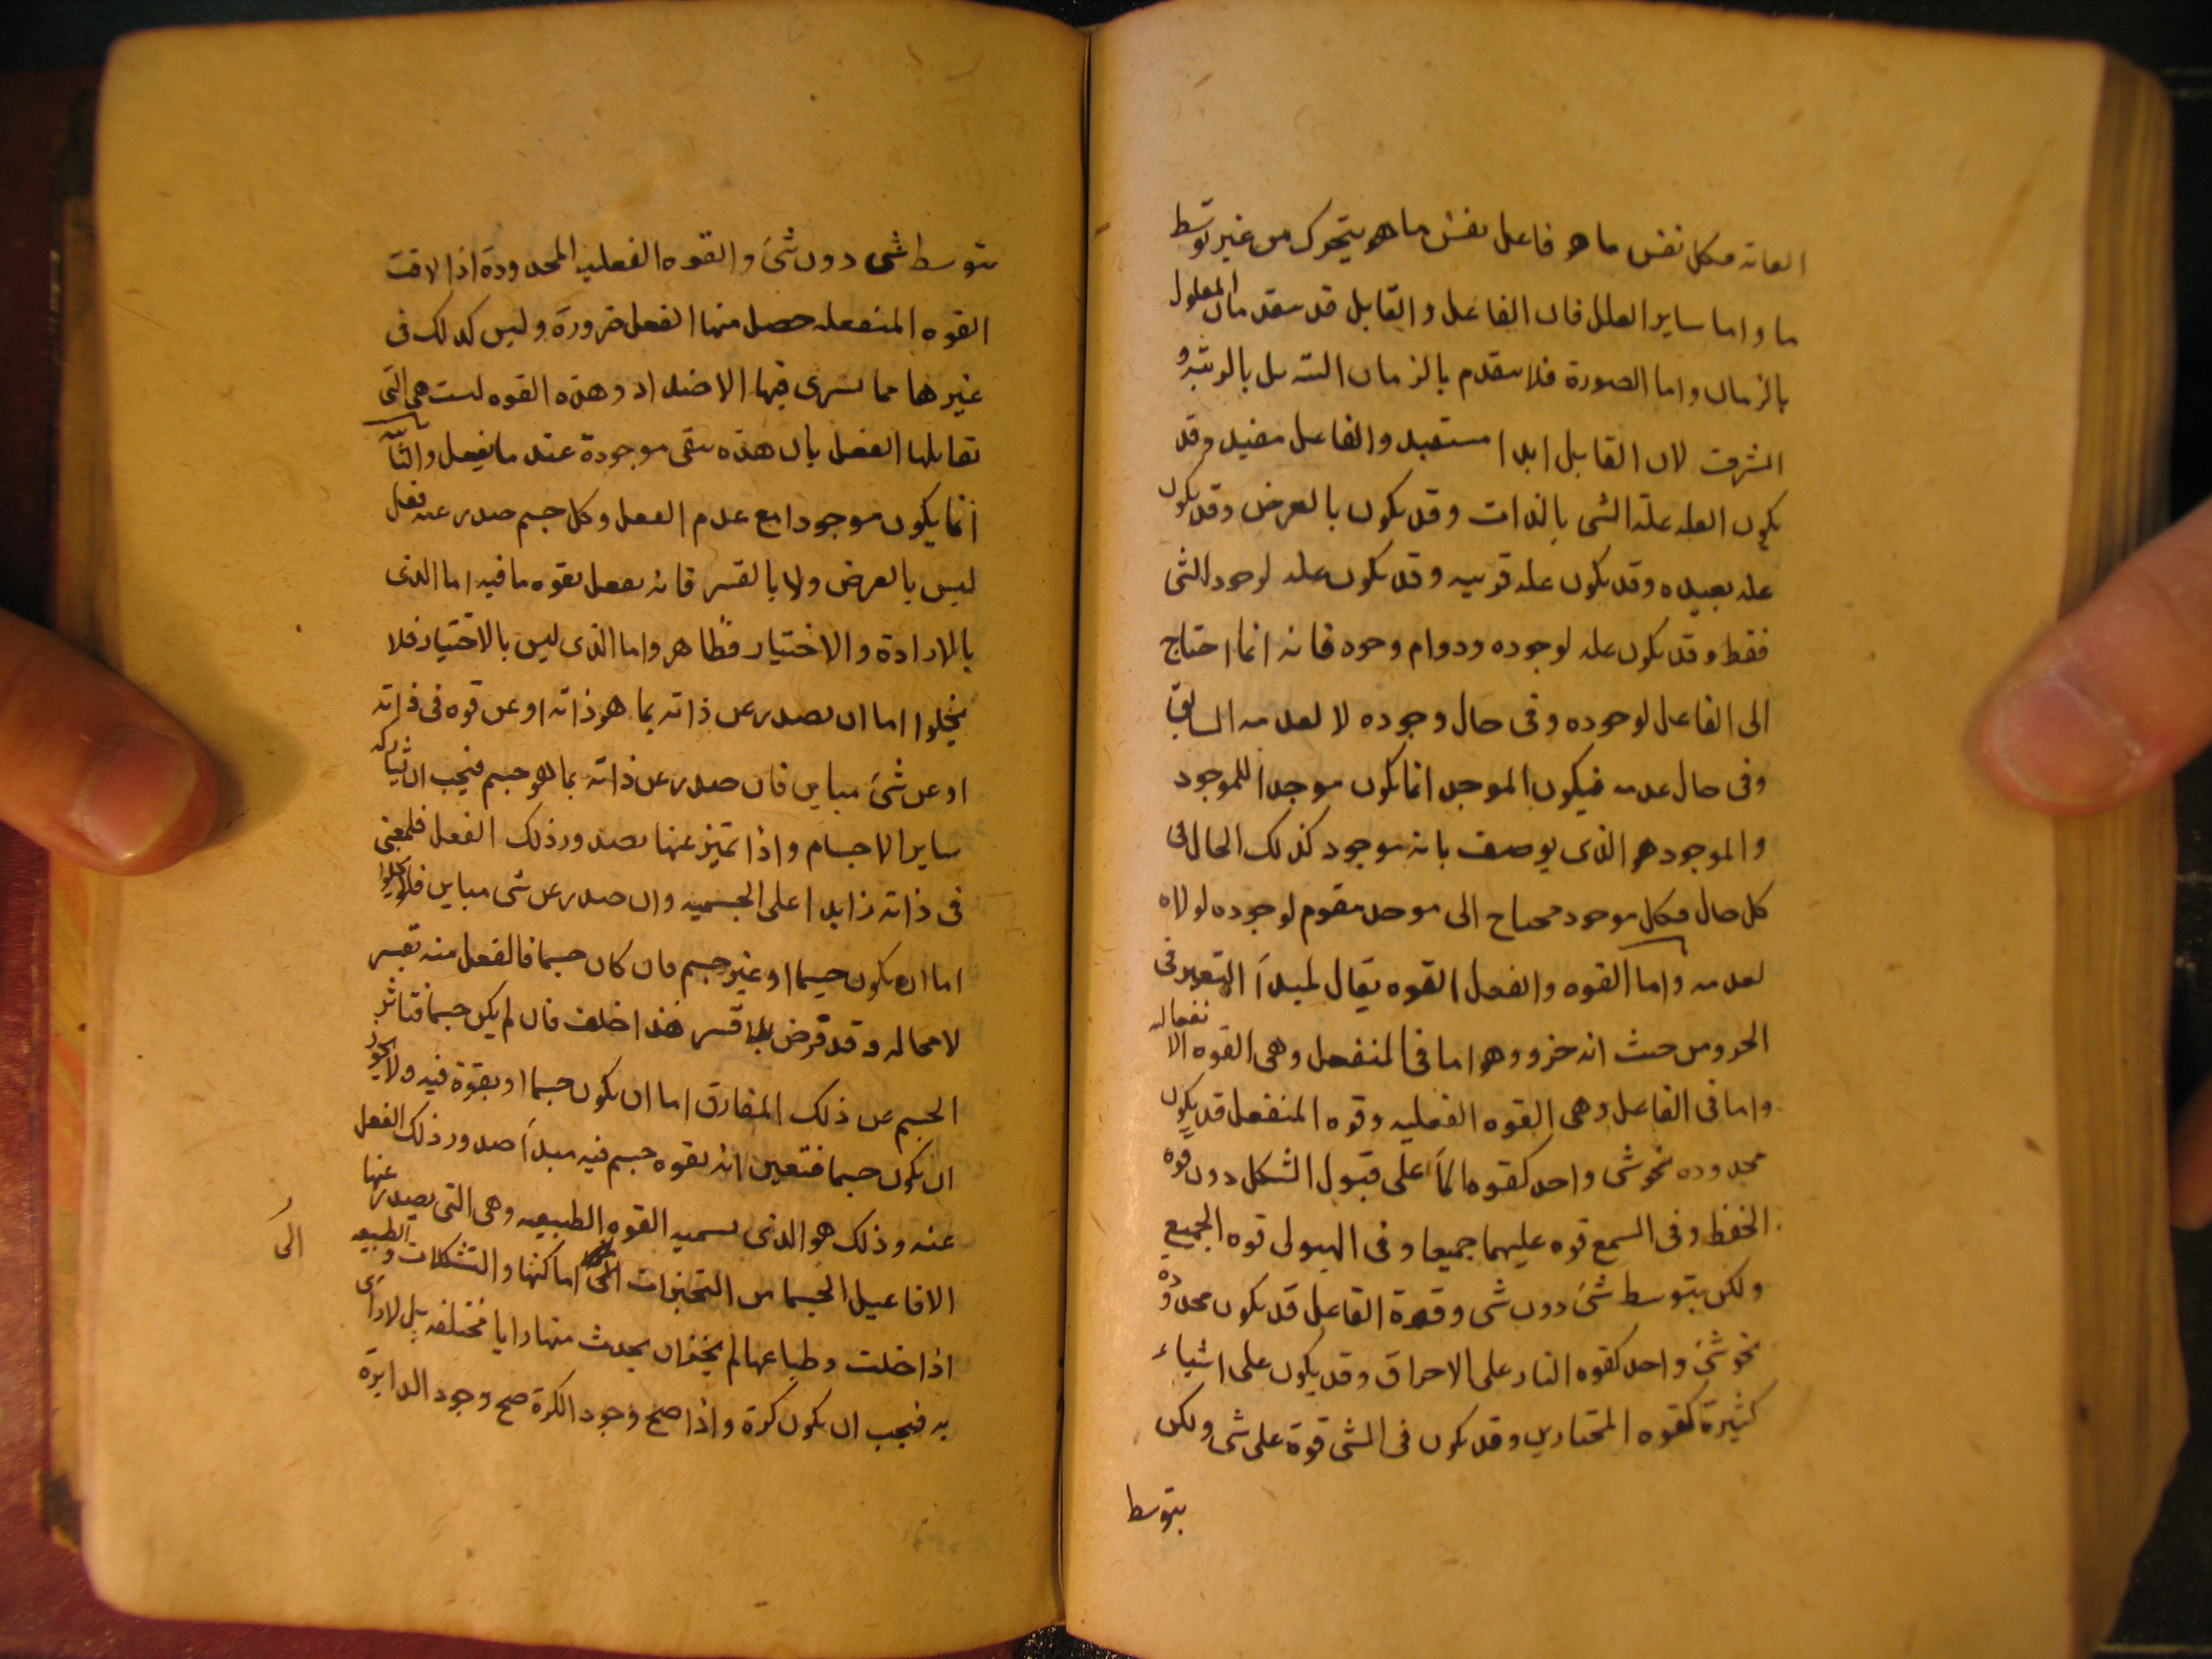 الغائه فكل نفس ما هو فاعل نفس ما هو يتحرك من غير توسط
ما واما ساير العلل فان الفاعل والقابل قد يتقدمان المعلول
بالزمان واما الصورة فلا يتقدم بالزمان البته بل بالرتبه و
الشرف لان القابل ابدا مستفيد والفاعل مفيد وقد
يكون العله علة الشى بالذات وقد يكون بالعرض وقد يكون
عله بعيده وقد يكون عله قريبه وقد يكون عله لوجود الشى
فقط وقد يكون عله لوجوده ودوام وجوده فانه انما احتاج
الى الفاعل لوجوده وفى حال وجوده لا لعدمه السابق
وفى حال عدمه فيكون الموجد انما يكون موجدا للموجود
والموجود هو الذى يوصف بانه موجد كذلك الحال فى
كل حال فكل موجود محتاج الى موجد مقوم لوجوده لولاه
لعدمه واما القوه والفعل القوه يقال لمبدأ التغير فى
اخر ومن حيث انه اخر وهو اما فى المنفعل وهى القوه الانفعاليه
واما فى الفاعل وهى القوه الفعليه وقوه المنفعل قد يكون
محدوده نحو شى واحد كقوه الماء على قبول الشكل دون قوه
الحفظ وفى الشمع قوه عليهما جميعا وفى الهيولى قوه الجميع
ولكن بتوسط شئ دون شى وقوة الفاعل قد يكون محدوده
نحو شئ واحد كقوه النار على الاحراق وقد يكون على اشياء
كثيرة كقوه المختارين وقد يكون فى الشى قوة على شى ولكن
بتوسط
بتوسط شى دون شئ والقوه الفعليه المحدودة اذا لاقت
القوه المنفعله حصل منها الفعل ضرورة وليس كذلك فى
غيرها مما يستوى فيها الاضداد وهذه القوه ليست هى التى
تقابلها الفعل بان هذه يبقى موجودة عند ما يفعل والثانيه
انما يكون موجودا مع عدم الفعل وكل جسم صدر عنه فعل
ليس بالعرض ولا بالقسر فانه يفعل بقوه ما فيه اما الذى
بالارادة والاختيار فظاهر واما الذى ليس بالاختيار فلا
يخلوا اما ان يصدر عن ذاته بما هو ذاته او عن قوه فى ذاته
او عن شئ مباين فان صدر عن ذاته بما هو جسم فيجب ان يشاركه
ساير الاجسام واذا تميز عنها بصدور ذلك الفعل فلمعنى
فى ذاته زايدا على الجسميه وان صدر عن شى مباين فلا يخلوا
اما ان يكون جسما او غير جسم فان كان جسما فالفعل منه بقسر
لا محاله وقد فرض بلا قسر هذا خلف فان لم يكن جسما فتاثر
الجسم عن ذلك المفارق اما ان يكون جسما او بقوة فيه ولا يجوز
ان يكون جسما فتعين انه بقوه جسم فيه مبدأ صدور ذلك الفعل
عنه وذلك هو الذى نسميه القوه الطبيعيه وهى التى يصدر عنها
الافاعيل الجسما من التحيزات الى اماكنها والتشكلات الطبيعيه و
اذا خلت وطباعها لم يجز ان يحدث منها زوايا مختلفه بل لا زاى
الى
به فيجب ان يكون كرة واذا صح وجود الكرة صح وجود الدايرة